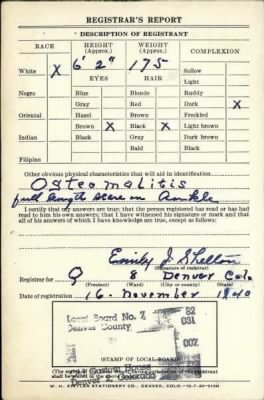 REGISTRAR'S REPORT
DESCRIPTION OF REGISTRANT
RACE
HEIGHT
(Approx.)
WEIGHT
(Approx.)
COMPLEXION
White X
6' 2"
175
Sallow
Light
EYES
HAIR
Negro
Blue
Blonde
Ruddy
Gray
Red
Dark X
Oriental
Hazel
Brown
Freckled
Brown X
Black X
Light brown
Indian
Black
Gray
Dark brown
Bald
Black
Filipino
Other obvious physical characteristics that will aid in identification
Osteomalitis
full length scare on Ankle
I certify that my answers are true; that the person registered has read or has had
read to him his own answers; that I have witnessed his signature or mark and that
all of his answers of which I have knowledge are true, except as follows:
Emily J. Shellon
(Signature of registrar)
Registrar for 9 8 Denver Colo
(Precinct) (Ward) (City or county) (State)
Date of registration 16 November 1940
Local Board No. 7 82
Denver County 031
007
Old Custom House
Denver 2, Colorado
(STAMP OF LOCAL BOARD)